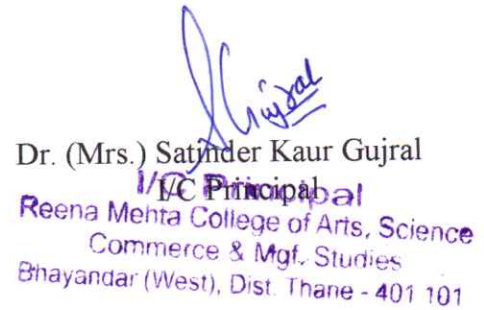 Gujral
Dr. (Mrs.) Satinder Kaur Gujral
I/C Principal
I/C Principal
Reena Mehta College of Arts, Science
Commerce & Mgt. Studies
Bhayandar (West), Dist. Thane - 401 101